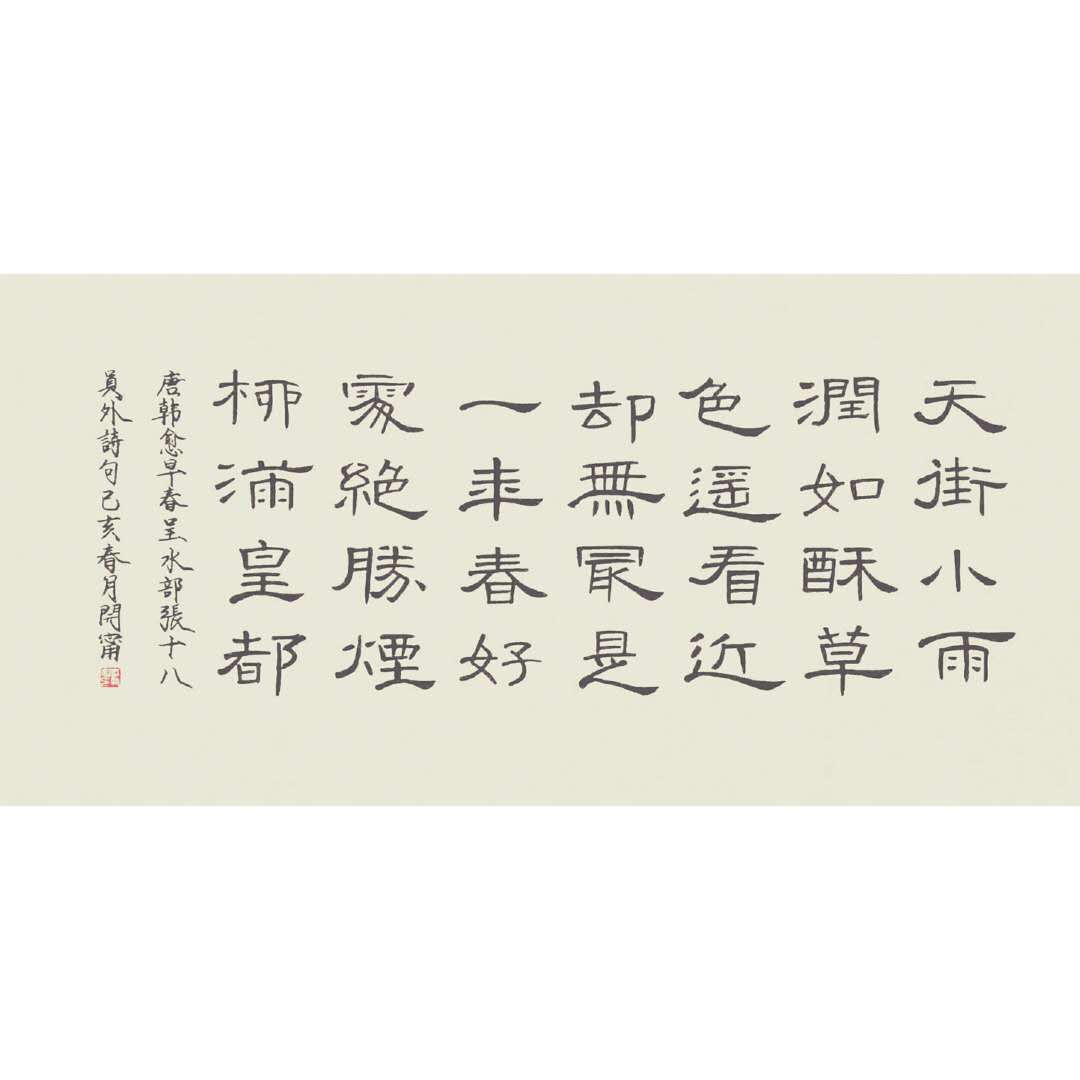 天街小雨
潤如酥草
色遥看近
却無冣是
一年春好
處絕勝煙
柳滿皇都
唐韩愈早春呈水部張十八
員外詩句己亥春月閆甯